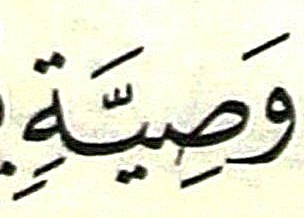 وَصِيَّةِ